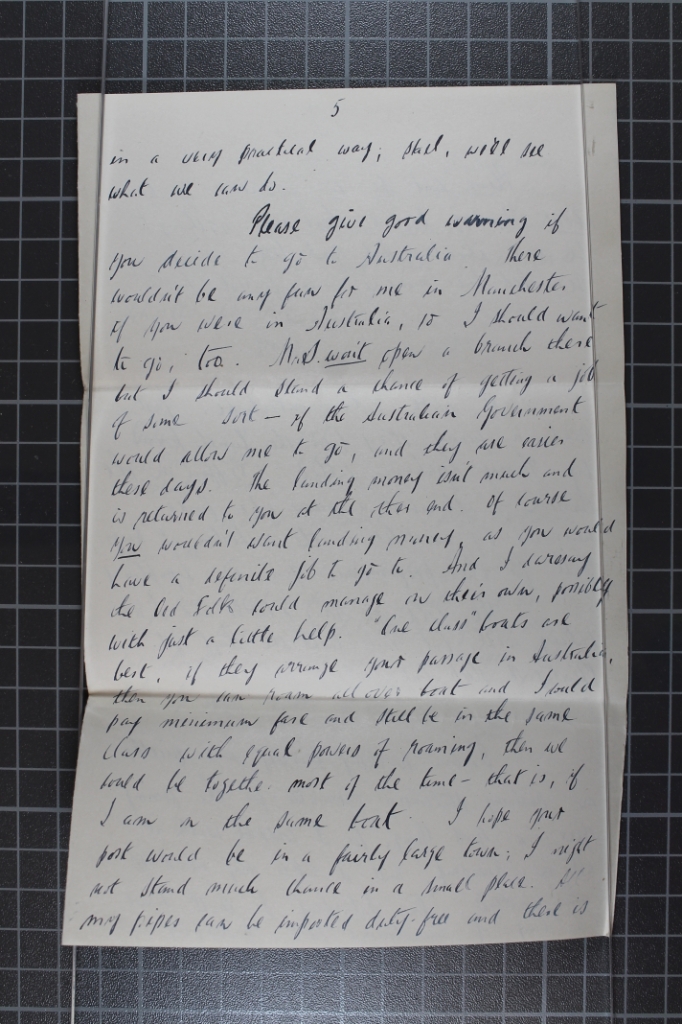 5
in a very practical way; still, we'll see
what we can do.
Please give good warning if
you decide to go to Australia. There
wouldn't be any fun for me in Manchester
if you were in Australia, so I should want
to go, too. M.S. won't open a branch there
but I should stand a chance of getting a job
of some sort — if the Australian Government
would allow me to go, and they are easier
these days. The landing money isn't much and
is returned to you at the other end. Of course
you wouldn't want landing money, as you would
have a definite job to go to. And I daresay
the Old Folks could manage on their own, possibly
with just a little help. "One class" boats are
best, if they arrange your passage in Australia,
then you can roam all over boat and I could
pay minimum fare and still be in the same
class with equal powers of roaming, then we
could be together most of the time - that is, if
I am on the same boat. I hope your
post would be in a fairly large town; I might
not stand much chance in a small place. All
my pipes can be imported duty-free and there is